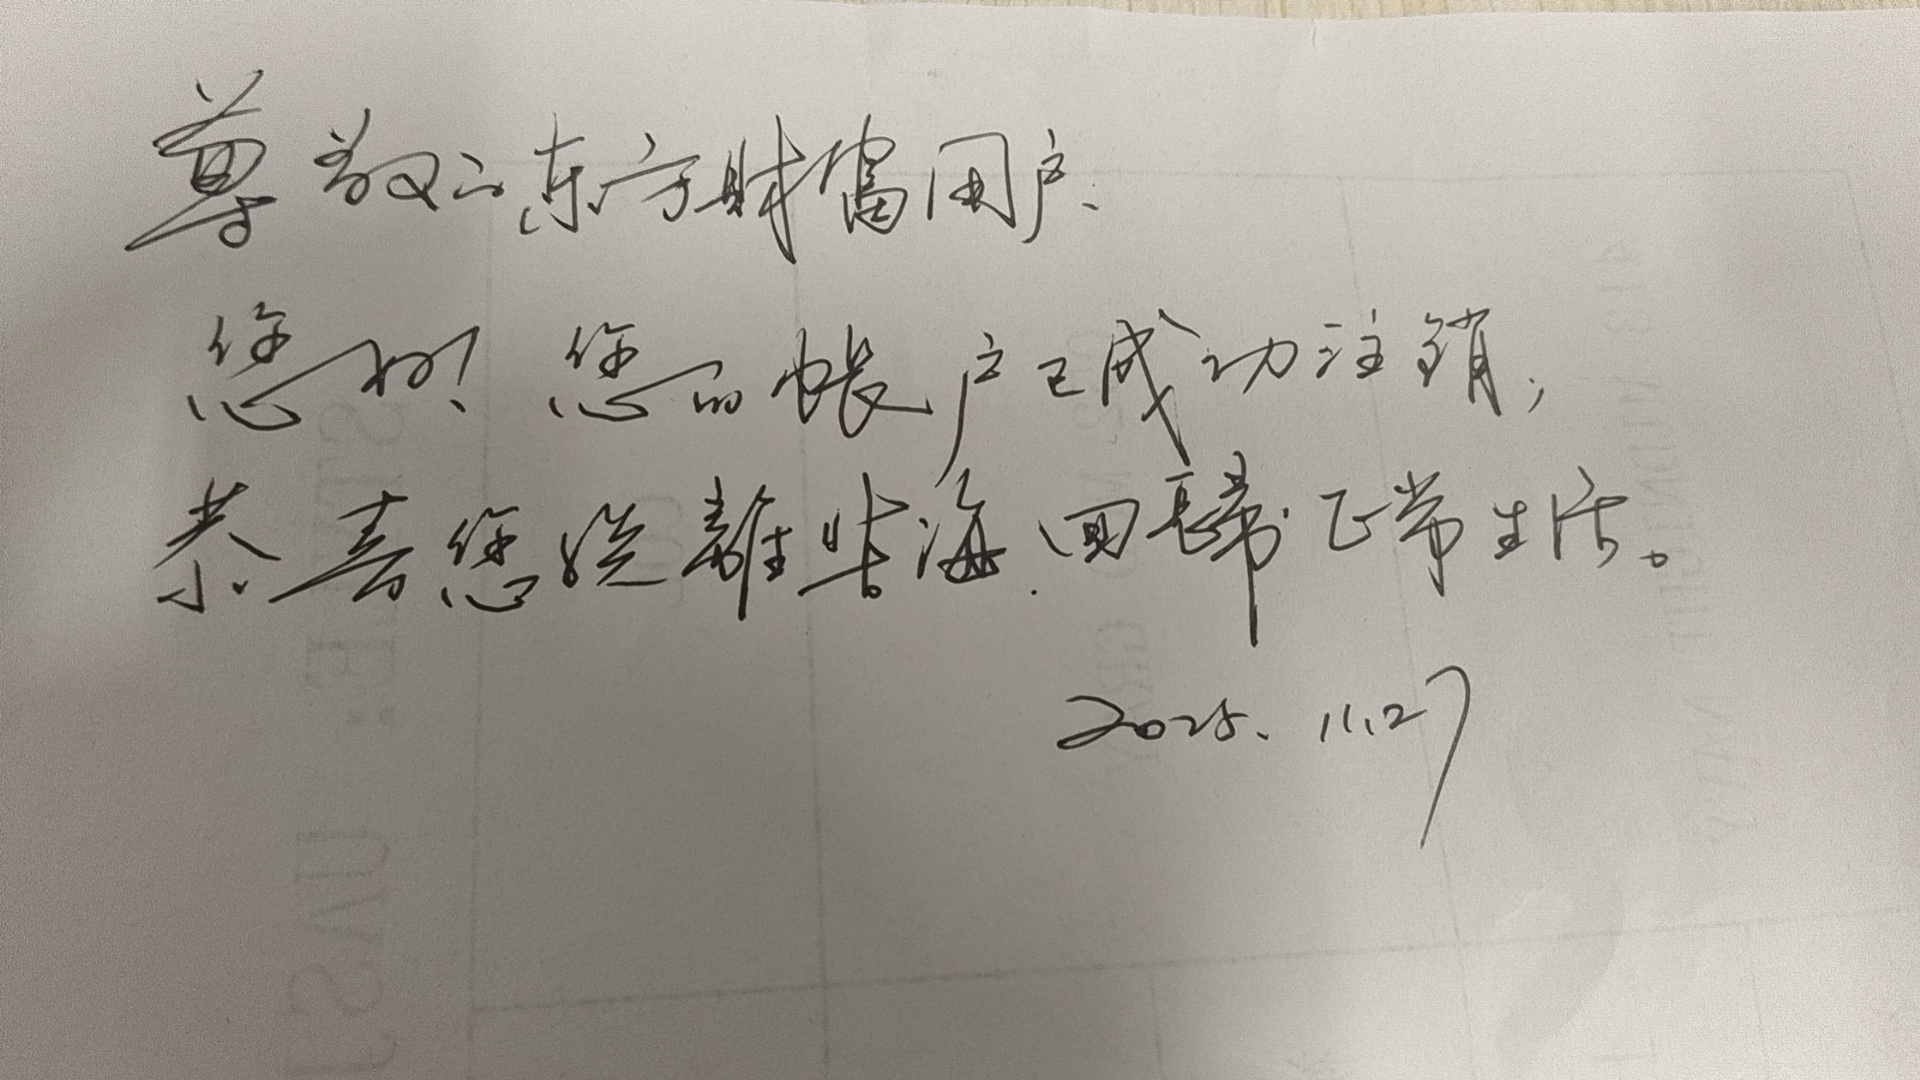 尊敬的东方财富用户.
您好! 您的帐户已成功注销,
恭喜您脱離苦海.回歸正常生活。
2025.11.27